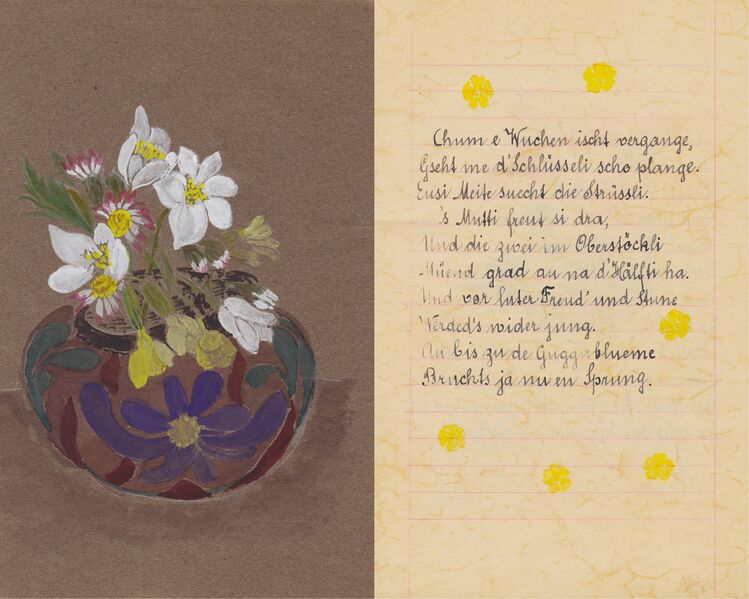 Chum e Wuchen ischt vergange,
Gseht me d'Schlüsseli scho plange.
Eusi Meite suecht die Strüssli.
's Mutti freut si dra,
Und die zwei im Oberstöckli
Müend grad au na d'Hälfti ha.
Und vor luter Freud' und Stune
Werded's wider jung.
Au bis zu de Guggublueme
Bruchts ja nu en Sprung.